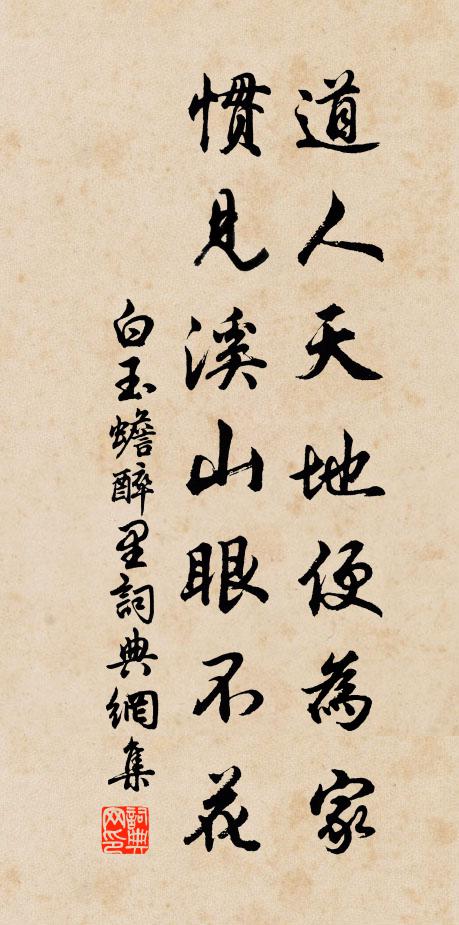 道人天地便為家
慣見溪山眼不花
白玉蟾醉里詞典網集
詞典網印